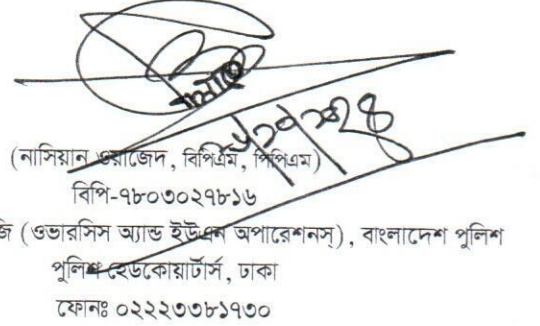 (নাসিয়ান ওয়াজেদ, বিপিএম, পিপিএম)
বিপি-৭৮০৩০২৭৮১৬
জি (ওভারসিস অ্যান্ড ইউএন অপারেশনস্), বাংলাদেশ পুলিশ
পুলিশ হেডকোয়ার্টার্স, ঢাকা
ফোনঃ ০২২২৩৩৮১৭৩০